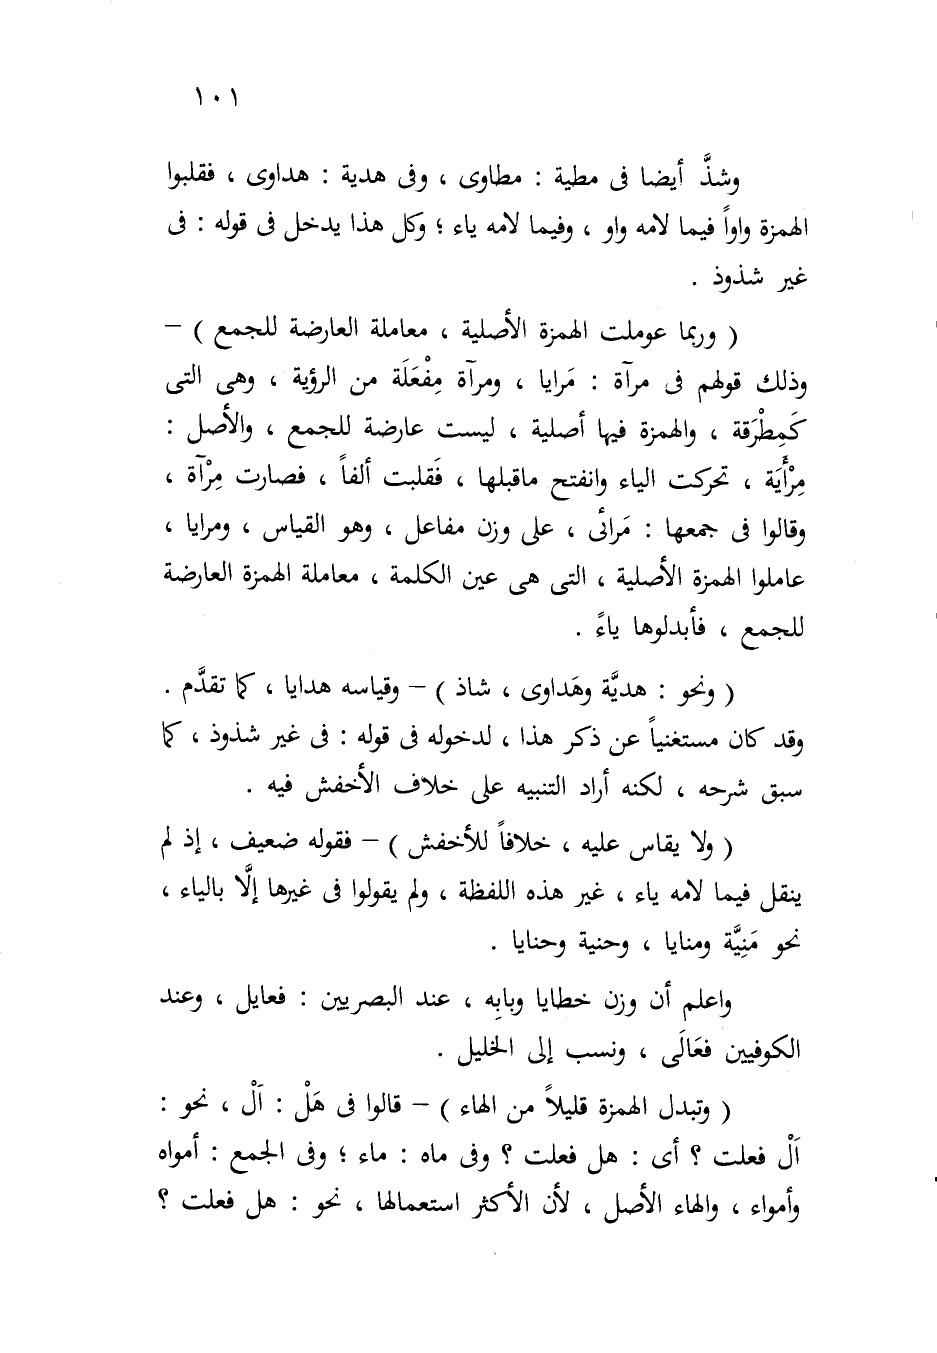 ١٠١
وشذَّ أيضا فى مطية : مطاوى ، وفى هدية : هداوى ، فقلبوا
الهمزة واواً فيما لامه واو ، وفيما لامه ياء ؛ وكل هذا يدخل فى قوله : فى
غير شذوذ .
( وربما عوملت الهمزة الأصلية ، معاملة العارضة للجمع ) –
وذلك قولهم فى مرآة : مَرايا ، ومرآة مِفْعَلَة من الرؤية ، وهى التى
كَمِطْرَقة ، والهمزة فيها أصلية ، ليست عارضة للجمع ، والأصل :
مِرْأَيَة ، تحركت الياء وانفتح ماقبلها ، فَقلبت ألفاً ، فصارت مِرْآة ،
وقالوا فى جمعها : مَرائى ، على وزن مفاعل ، وهو القياس ، ومرايا ،
عاملوا الهمزة الأصلية ، التى هى عين الكلمة ، معاملة الهمزة العارضة
للجمع ، فأبدلوها ياءً .
( ونحو : هديَّة وهَداوى ، شاذ ) – وقياسه هدايا ، كما تقدَّم .
وقد كان مستغنياً عن ذكر هذا ، لدخوله فى قوله : فى غير شذوذ ، كما
سبق شرحه ، لكنه أراد التنبيه على خلاف الأخفش فيه .
( ولا يقاس عليه ، خلافاً للأخفش ) – فقوله ضعيف ، إذ لم
ينقل فيما لامه ياء ، غير هذه اللفظة ، ولم يقولوا فى غيرها إلَّا بالياء ،
نحو مَنِيَّة ومنايا ، وحنية وحنايا .
واعلم أن وزن خطايا وبابِه ، عند البصريين : فعايل ، وعند
الكوفيين فَعَالَى ، ونسب إلى الخليل .
( وتبدل الهمزة قليلاً من الهاء ) – قالوا فى هَلْ : اَلْ ، نحو :
اَلْ فعلت ؟ أى : هل فعلت ؟ وفى ماه : ماء ؛ وفى الجمع : أمواه
وأمواء ، والهاء الأصل ، لأن الأكثر استعمالها ، نحو : هل فعلت ؟